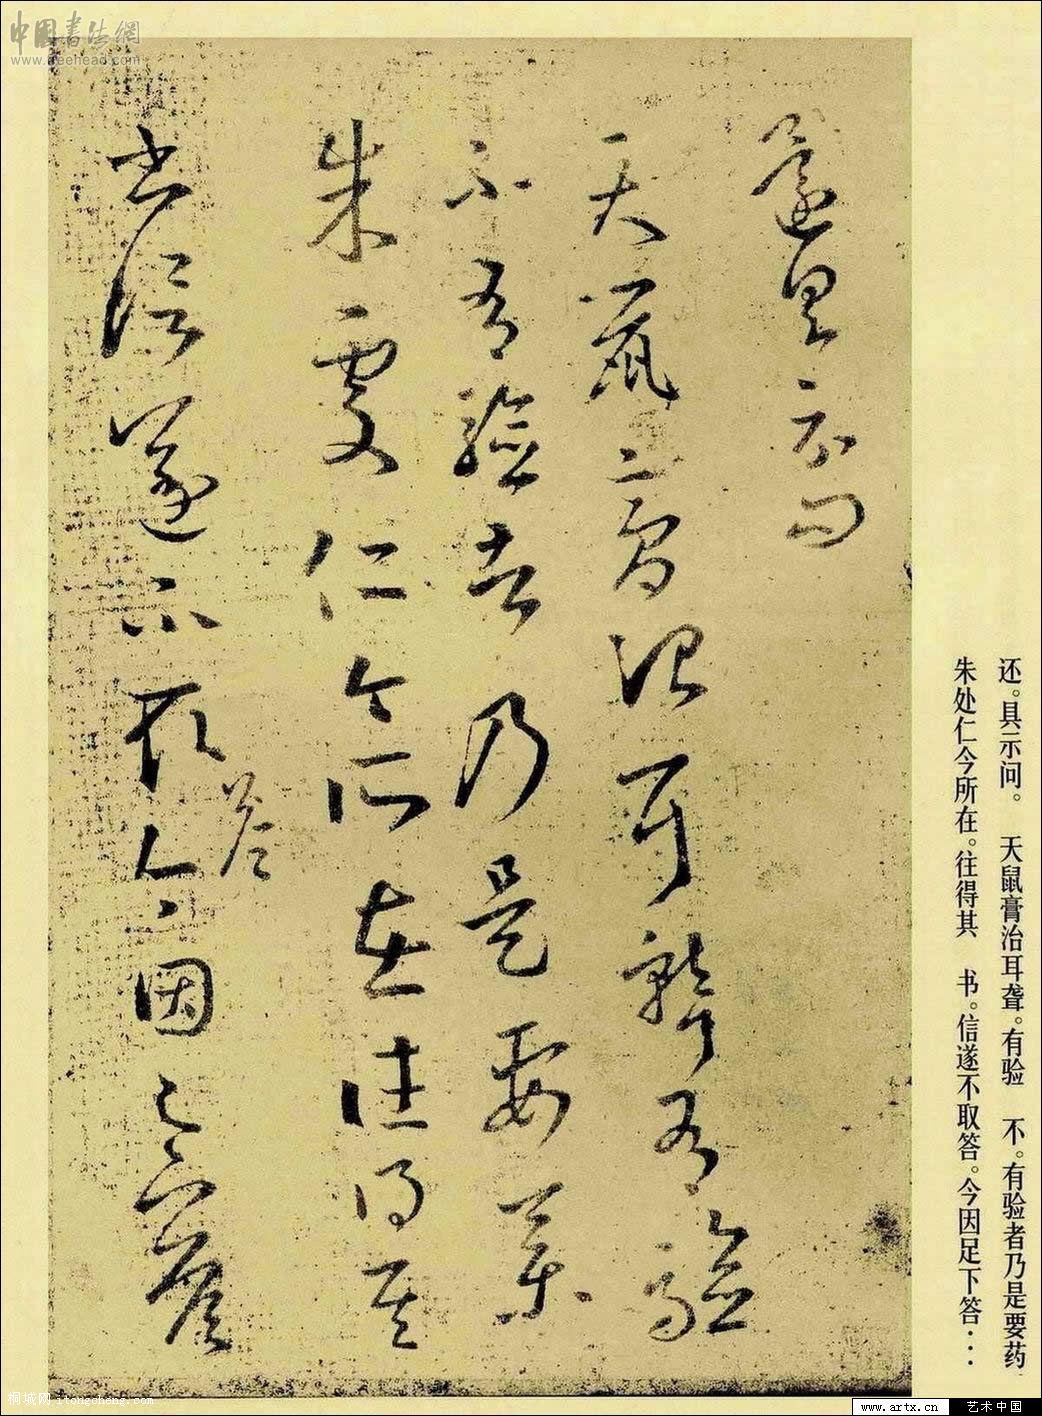 还。具示问。 天鼠膏治耳聋。有验 不。有验者乃是要药
朱处仁今所在。往得其 书。信遂不取答。今因足下答…
還具示問
天鼠膏治耳聾有驗
不有驗者乃是要藥
朱處仁今所在往得其
書信遂不取答今因足下答
中国书法網
www.freehead.com
桐城网 itongcheng.com
www.artx.cn 艺术中国